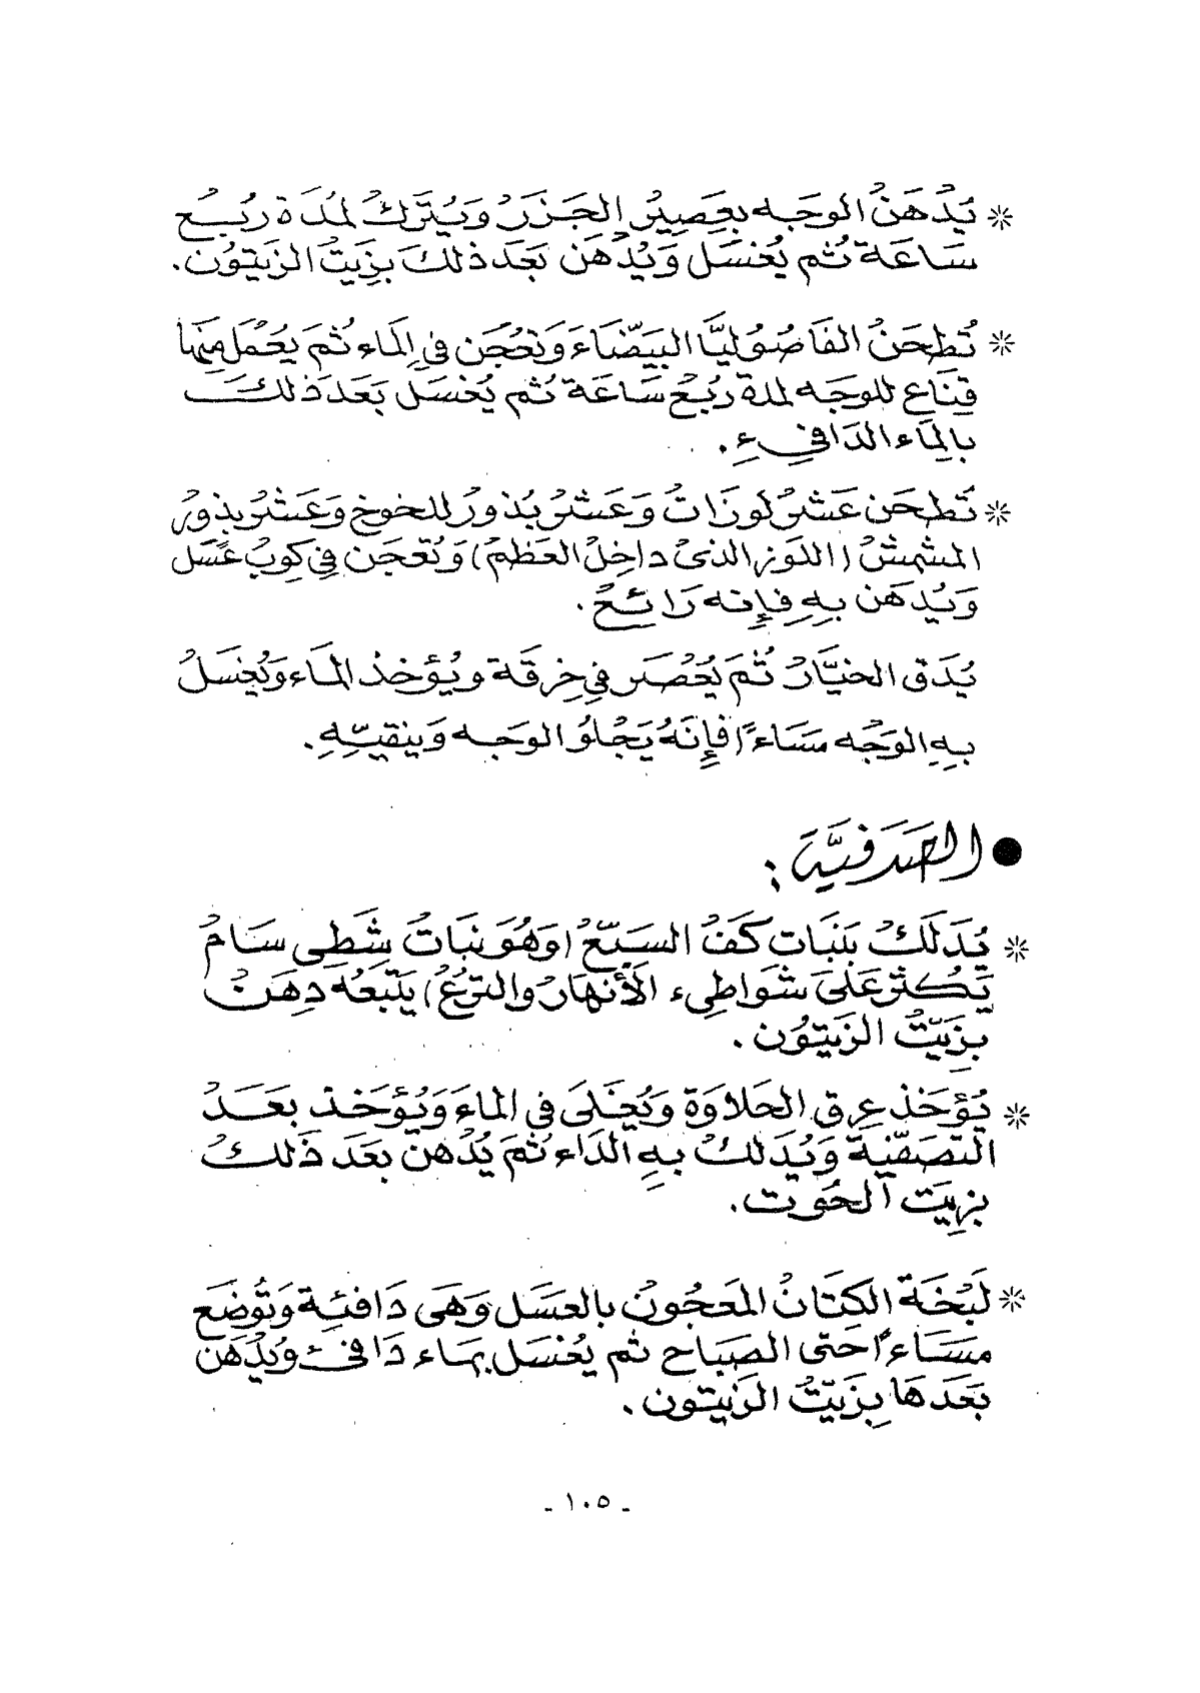 * يُدْهَنُ الوجَه بعَصِيرُ الجَزَرْ وَيُتَرَكُ لمُدَة رُبُع
سَاعَة ثُم يُغسَل وَيُدْهَن بَعَدَ ذلكَ بزِيَتُ الزَيتوُن.
* تُطحَنُ الفَاصُوُليَّا البَيَضَاءَ وَتعُجَن في المَاء ثُمَ يَعُمَل مِنهَا
قِنَاع للوجَه لمدة رُبُعْ سَاعَة ثم يُغسَل بَعَدَ ذلكَ
بالمَاء الدَافيءِ.
* تُطحَن عَشرُ لوزَاتُ وَعَشرُ بُذورُ للخوخ وَعَشرُ بذورُ
المشمشُ (اللوز الذىُ داخِلُ العَظمُ) وَتُعَجَن فِي كوِبُ عَسَل
وَيُدهَن بهِ فإِنه رَائعُ.
يُدَق الخيَّارُ ثُمَ يَعُصَر في خِرقَة ويُؤخذ المَاء وَيُغسَلُ
بهِ الوَجُه مسَاءً فإِنَهُ يَجُلوُ الوجَه وَينقيّهِ.
● الصَدَفيَّة :
* يُدَلَكُ بنَبَات كَفُ السَبّعُ (وَهُوَ نبَاتُ شَطِى سَامُ
يَكثرُ عَلىَ شوَاطِىء الأَنهَارُ والتِرَعُ) يَتبَعُهُ دِهَنُ
بزِيَتُ الزَيتوُن.
* يُؤخَذ عِرق الحَلاوَة وَيُغلَىَ في الماءَ وَيُؤخَذ بعَدَ
التصَفيَّة وَيُدَلكُ بهِ الدَاء ثمَ يُدْهَن بعَدَ ذَلكُ
بزِيَت الحُوَت.
* لَبْخَة الكِتَانُ المَعجُونُ بالعسَل وَهَى دَافئِة وَتُوضَع
مسَاءً حَتى الصَبَاح ثم يُغسَل بمَاء دَافئ وَيُدْهَن
بَعَدَهَا بزِيَتُ الزَيتون.
- ١٠٥ -